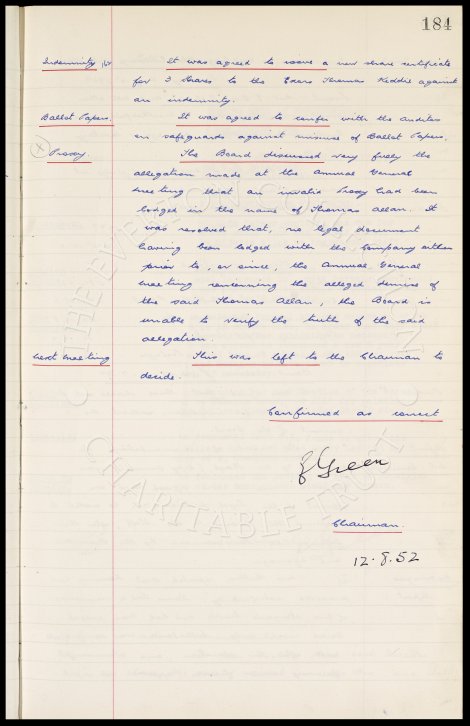 184
Indemnity
It was agreed to issue a new share certificate
for 3 shares to the Exors Thomas Kiddie against
an indemnity.
Ballot Papers.
It was agreed to confer with the auditor
on safeguards against misuse of Ballot Papers.
Proxy.
The Board discussed very fully the
allegation made at the Annual General
meeting that an invalid Proxy had been
lodged in the name of Thomas Allan. It
was resolved that, no legal document
having been lodged with the Company either
prior to, or since, the Annual General
meeting concerning the alleged demise of
the said Thomas Allan, the Board is
unable to verify the truth of the said
allegation.
next meeting
This was left to the Chairman to
decide.
Confirmed as correct
Green
Chairman.
12.8.52
THE EVERTON COLLECTION
CHARITABLE TRUST